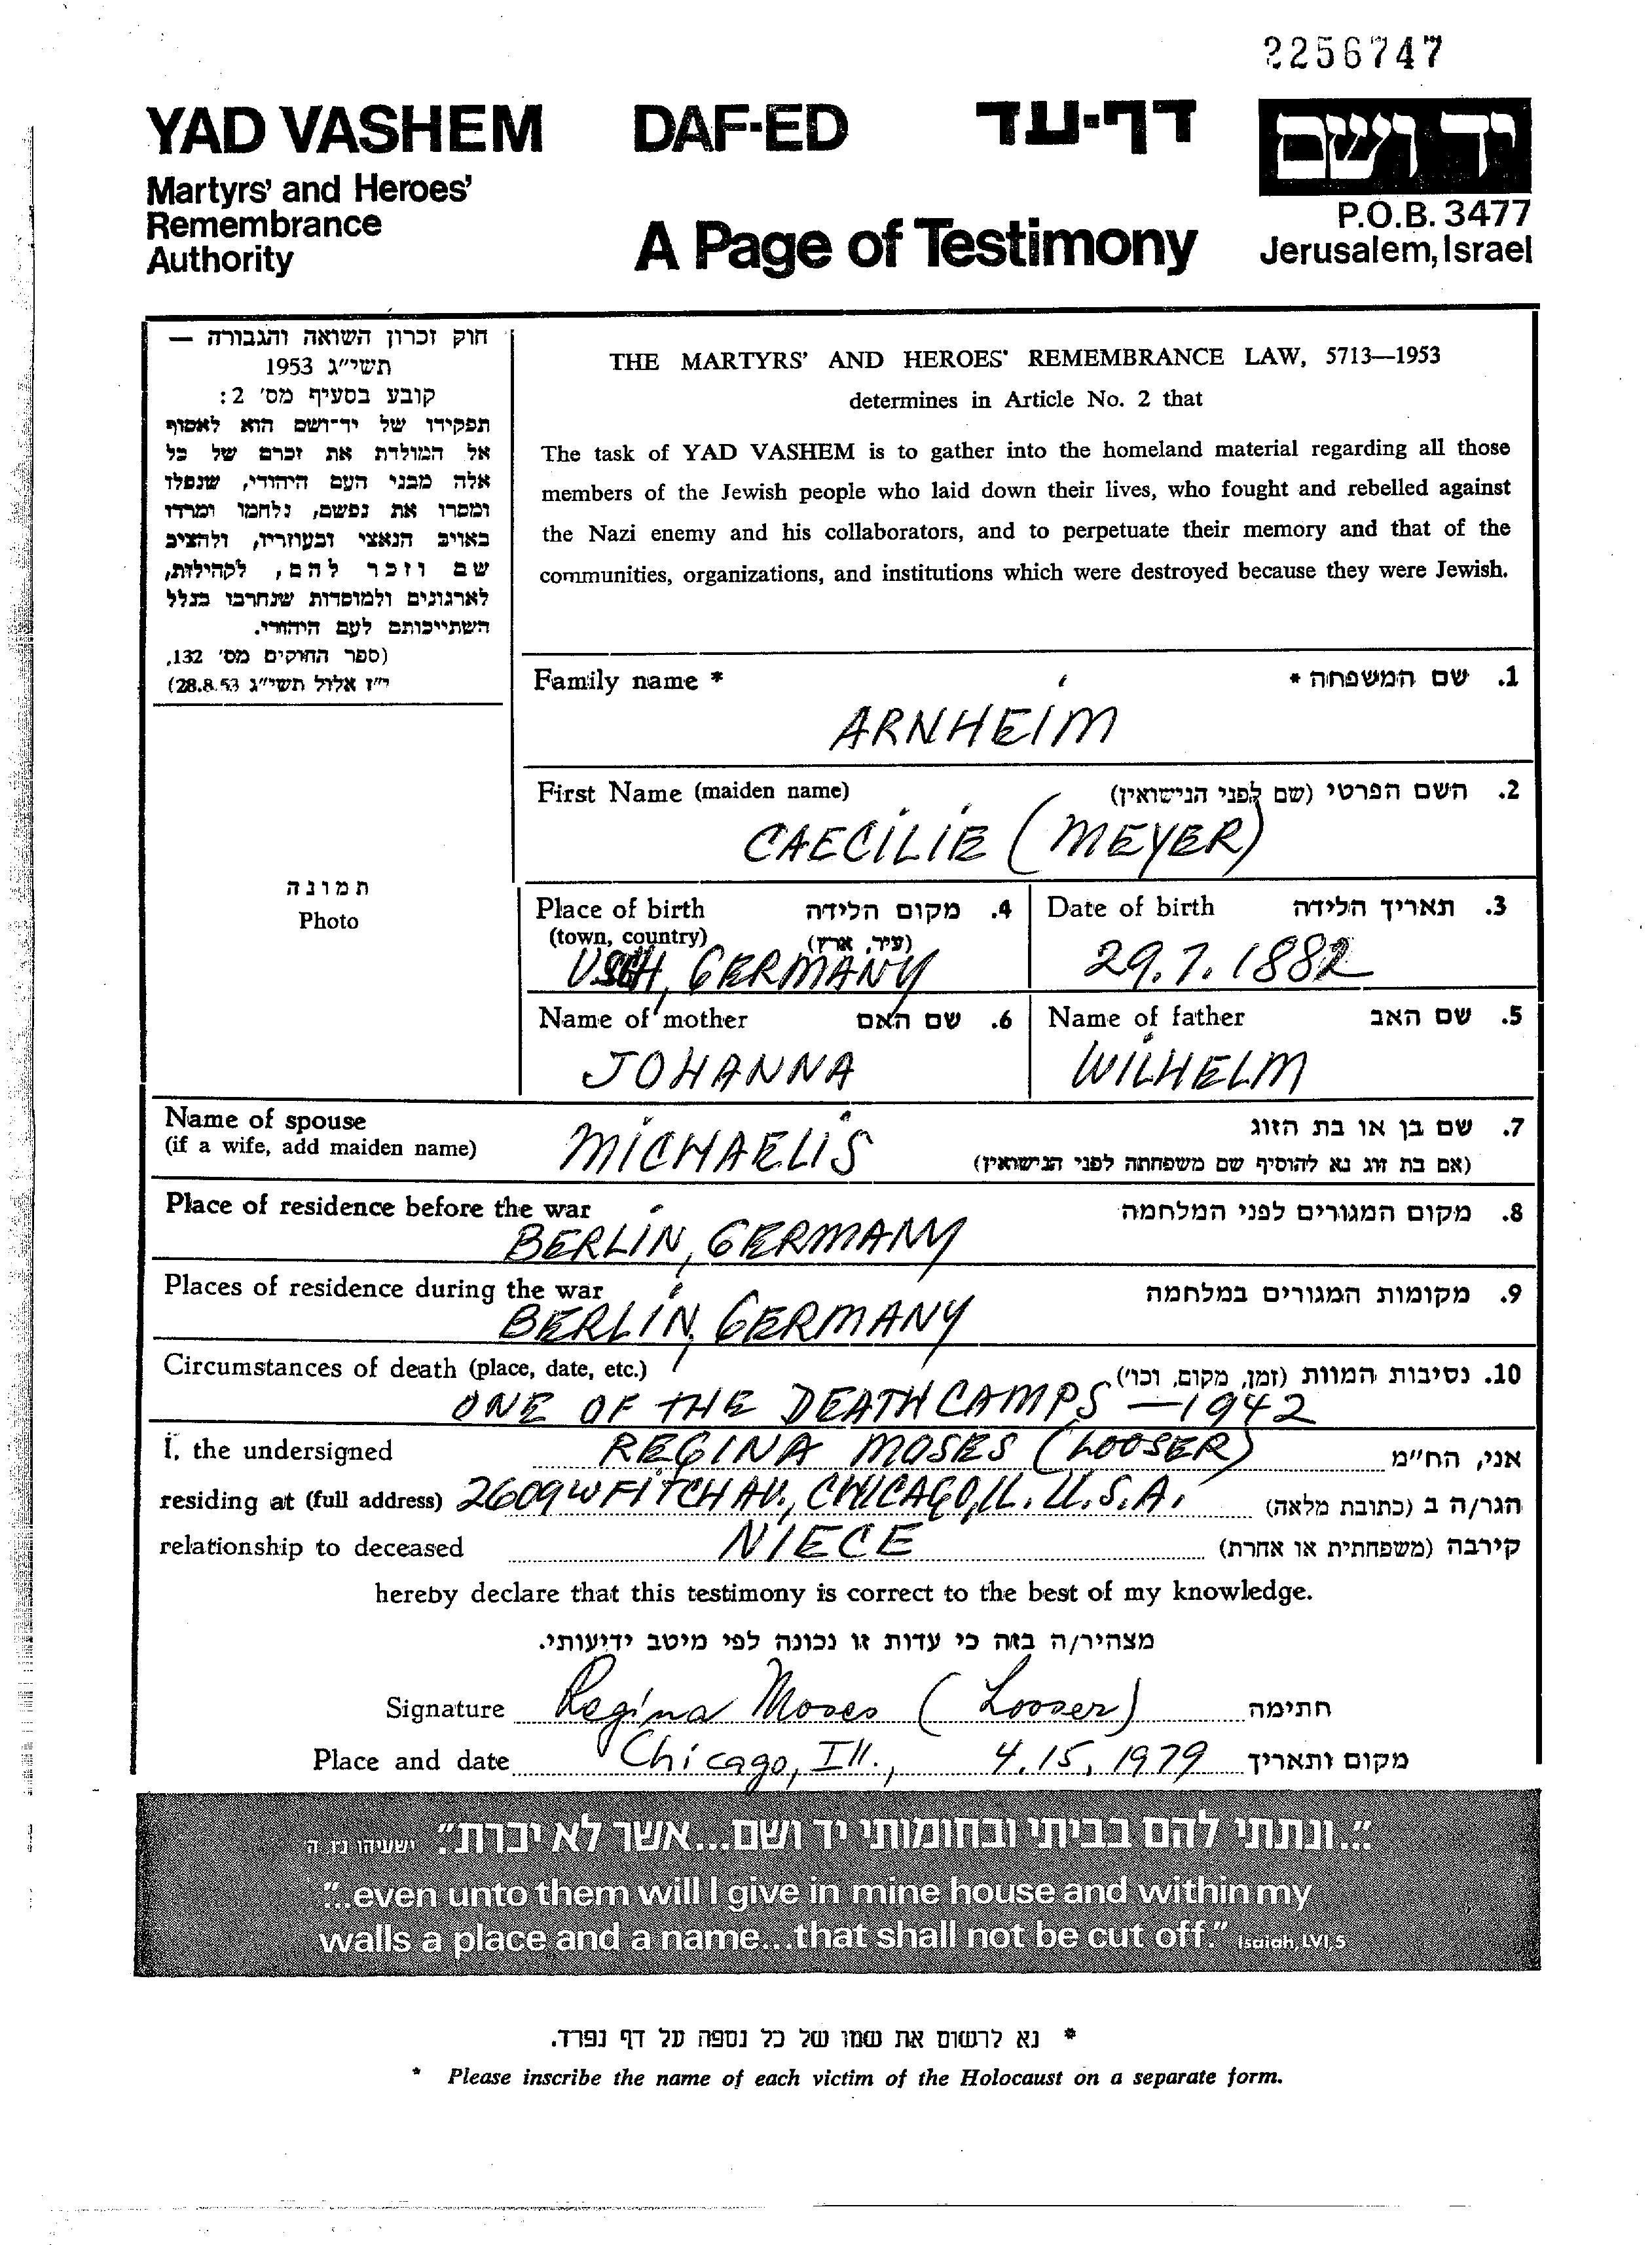 2256747
YAD VASHEM DAF-ED דף-עד יד ושם
Martyrs' and Heroes'
Remembrance
Authority
A Page of Testimony
P.O.B. 3477
Jerusalem, Israel
חוק זכרון השואה והגבורה —
תשי"ג 1953
קובע בסעיף מס' 2:
תפקידו של יד-ושם הוא לאסוף
אל המולדת את זכרם של כל
אלה מבני העם היהודי, שנפלו
ומסרו את נפשם, נלחמו ומרדו
באויב הנאצי ובעוזריו, ולהציב
שם וזכר להם, לקהילות,
לארגונים ולמוסדות שנחרבו בגלל
השתייכותם לעם היהודי.
(ספר החוקים מס' 132,
י"ז אלול תשי"ג 28.8.53)
THE MARTYRS' AND HEROES' REMEMBRANCE LAW, 5713—1953
determines in Article No. 2 that
The task of YAD VASHEM is to gather into the homeland material regarding all those
members of the Jewish people who laid down their lives, who fought and rebelled against
the Nazi enemy and his collaborators, and to perpetuate their memory and that of the
communities, organizations, and institutions which were destroyed because they were Jewish.
Family name * 1. שם המשפחה *
ARNHEIM
First Name (maiden name) 2. השם הפרטי (שם לפני הנישואין)
CAECILIE (MEYER)
תמונה
Photo
Place of birth 4. מקום הלידה
(town, country) (עיר, ארץ)
USCH, GERMANY
Date of birth 3. תאריך הלידה
29.7.1882
Name of mother 6. שם האם
JOHANNA
Name of father 5. שם האב
WILHELM
Name of spouse 7. שם בן או בת הזוג
(if a wife, add maiden name) MICHAELIS (אם בת זוג נא להוסיף שם משפחתה לפני הנישואין)
Place of residence before the war 8. מקום המגורים לפני המלחמה
BERLIN, GERMANY
Places of residence during the war 9. מקומות המגורים במלחמה
BERLIN, GERMANY
Circumstances of death (place, date, etc.) 10. נסיבות המוות (זמן, מקום, וכו')
ONE OF THE DEATH CAMPS — 1942
I, the undersigned REGINA MOSES (LOOSER) אני, הח"מ
residing at (full address) 2609 W FITCH AV., CHICAGO, IL. U.S.A. הגר/ה ב (כתובת מלאה)
relationship to deceased NIECE קירבה (משפחתית או אחרת)
hereby declare that this testimony is correct to the best of my knowledge.
מצהיר/ה בזה כי עדות זו נכונה לפי מיטב ידיעותי.
Signature Regina Moses (Looser) חתימה
Place and date Chicago, Ill., 4.15, 1979 מקום ותאריך
"...ונתתי להם בביתי ובחומותי יד ושם...אשר לא יכרת." ישעיהו נו, ה
"...even unto them will I give in mine house and within my
walls a place and a name...that shall not be cut off." Isaiah, LVI, 5
* נא לרשום את שמו של כל נספה על דף נפרד.
* Please inscribe the name of each victim of the Holocaust on a separate form.